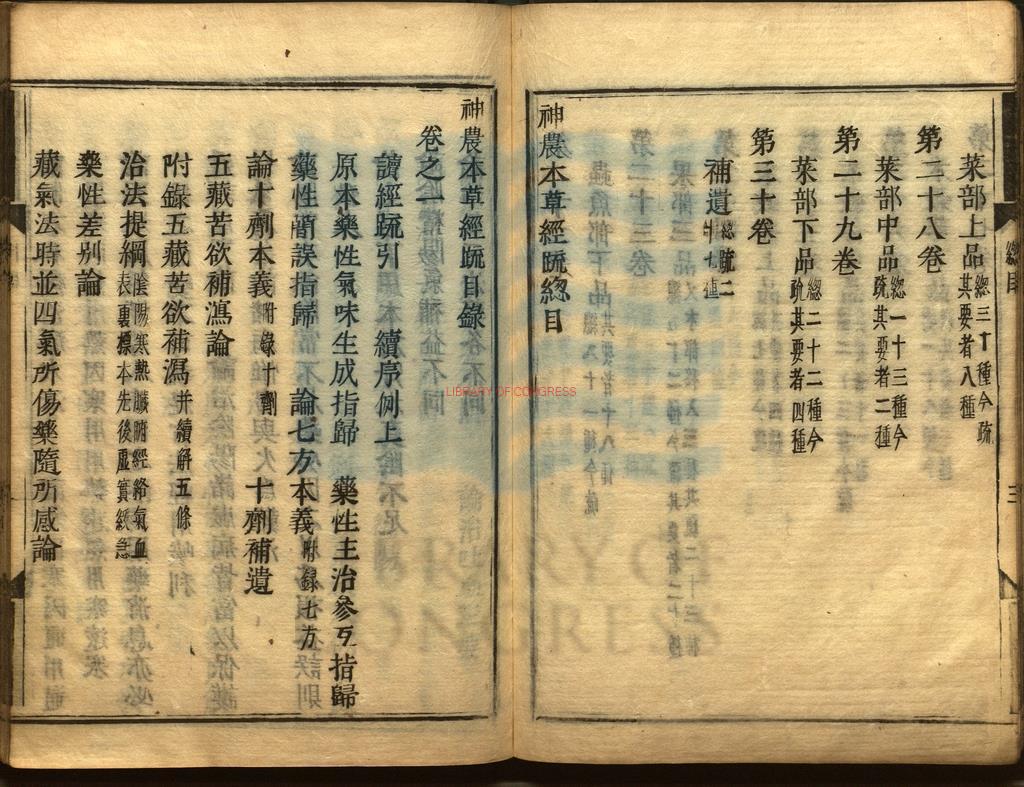 菜部上品總三十種今疏其要者八種
第二十八卷
菜部中品總一十三種今疏其要者二種
第二十九卷
菜部下品總二十二種今疏其要者四種
第三十卷
補遺總疏二十七種
神農本草經疏總目
總目
三
神農本草經疏目錄
卷之一
讀經疏引 續序例上
原本藥性氣味生成指歸 藥性主治參互指歸
藥性簡誤指歸 論七方本義附錄七方
論十劑本義附錄十劑 十劑補遺
五藏苦欲補瀉論
附錄五藏苦欲補瀉并續解五條
治法提綱陰陽寒熱臟腑經絡氣血表裏標本先後虛實緩急
藥性差別論
藏氣法時並四氣所傷藥隨所感論
LIBRARY OF CONGRESS